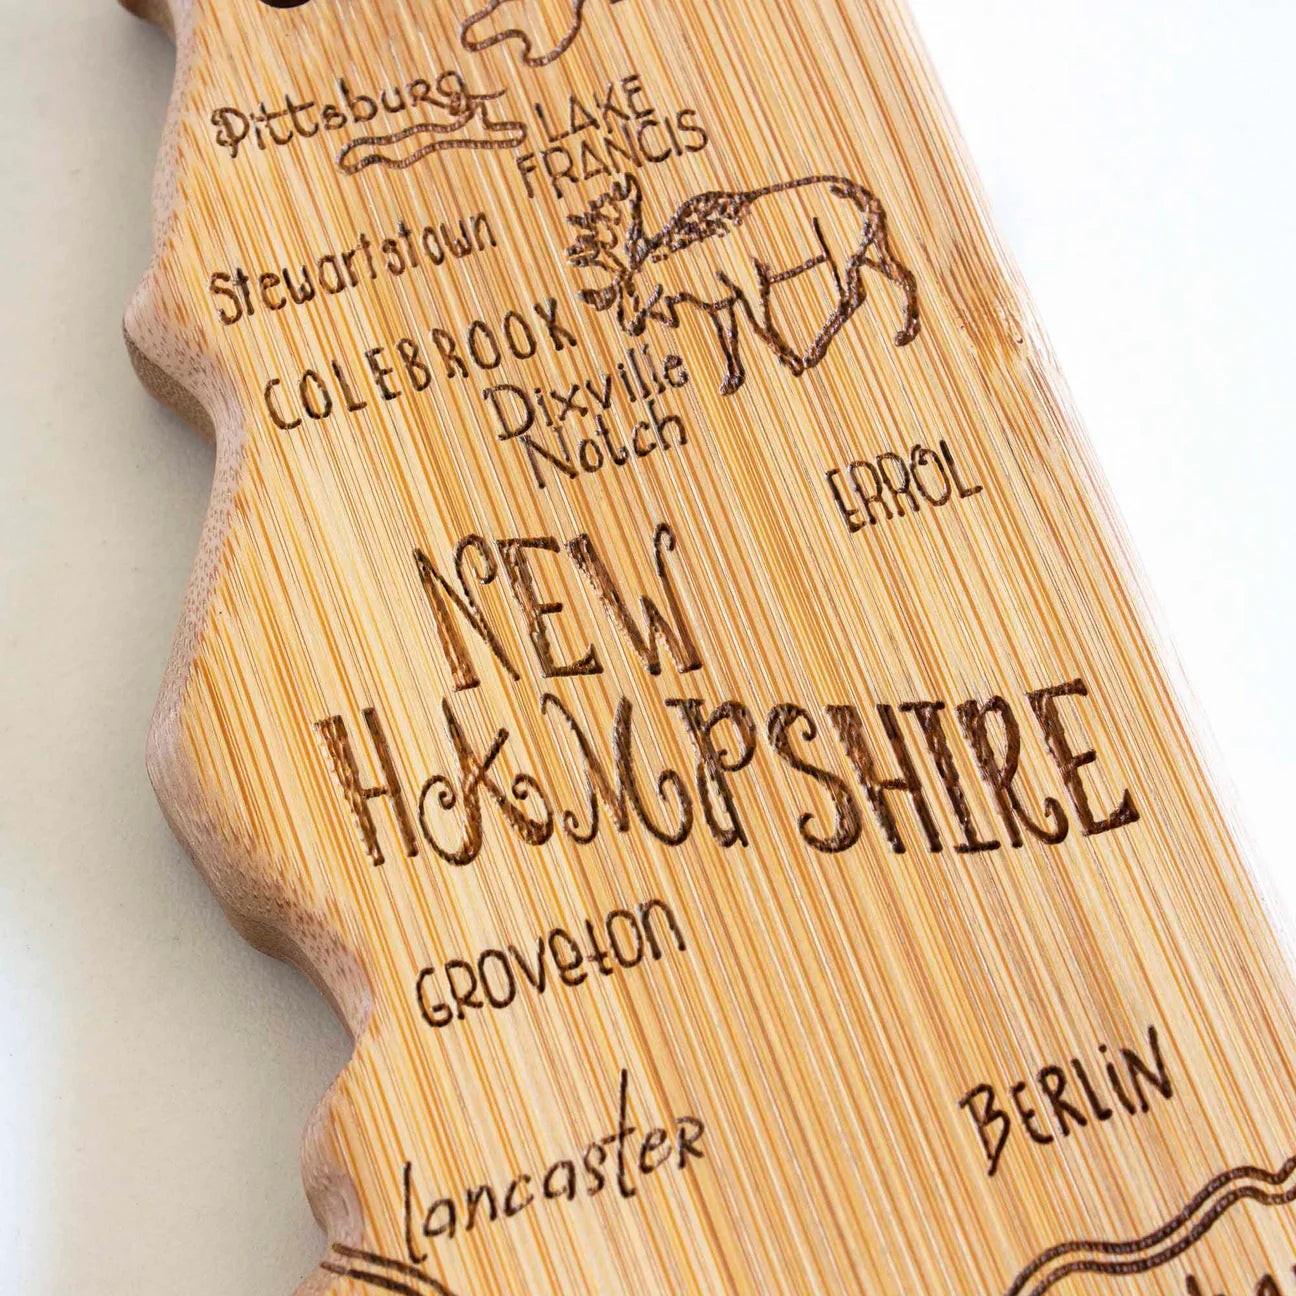 Pittsburg
LAKE
FRANCIS
Stewartstown
COLEBROOK
Dixville
Notch
ERROL
NEW
HAMPSHIRE
GROVetON
BERLiN
lancasteR